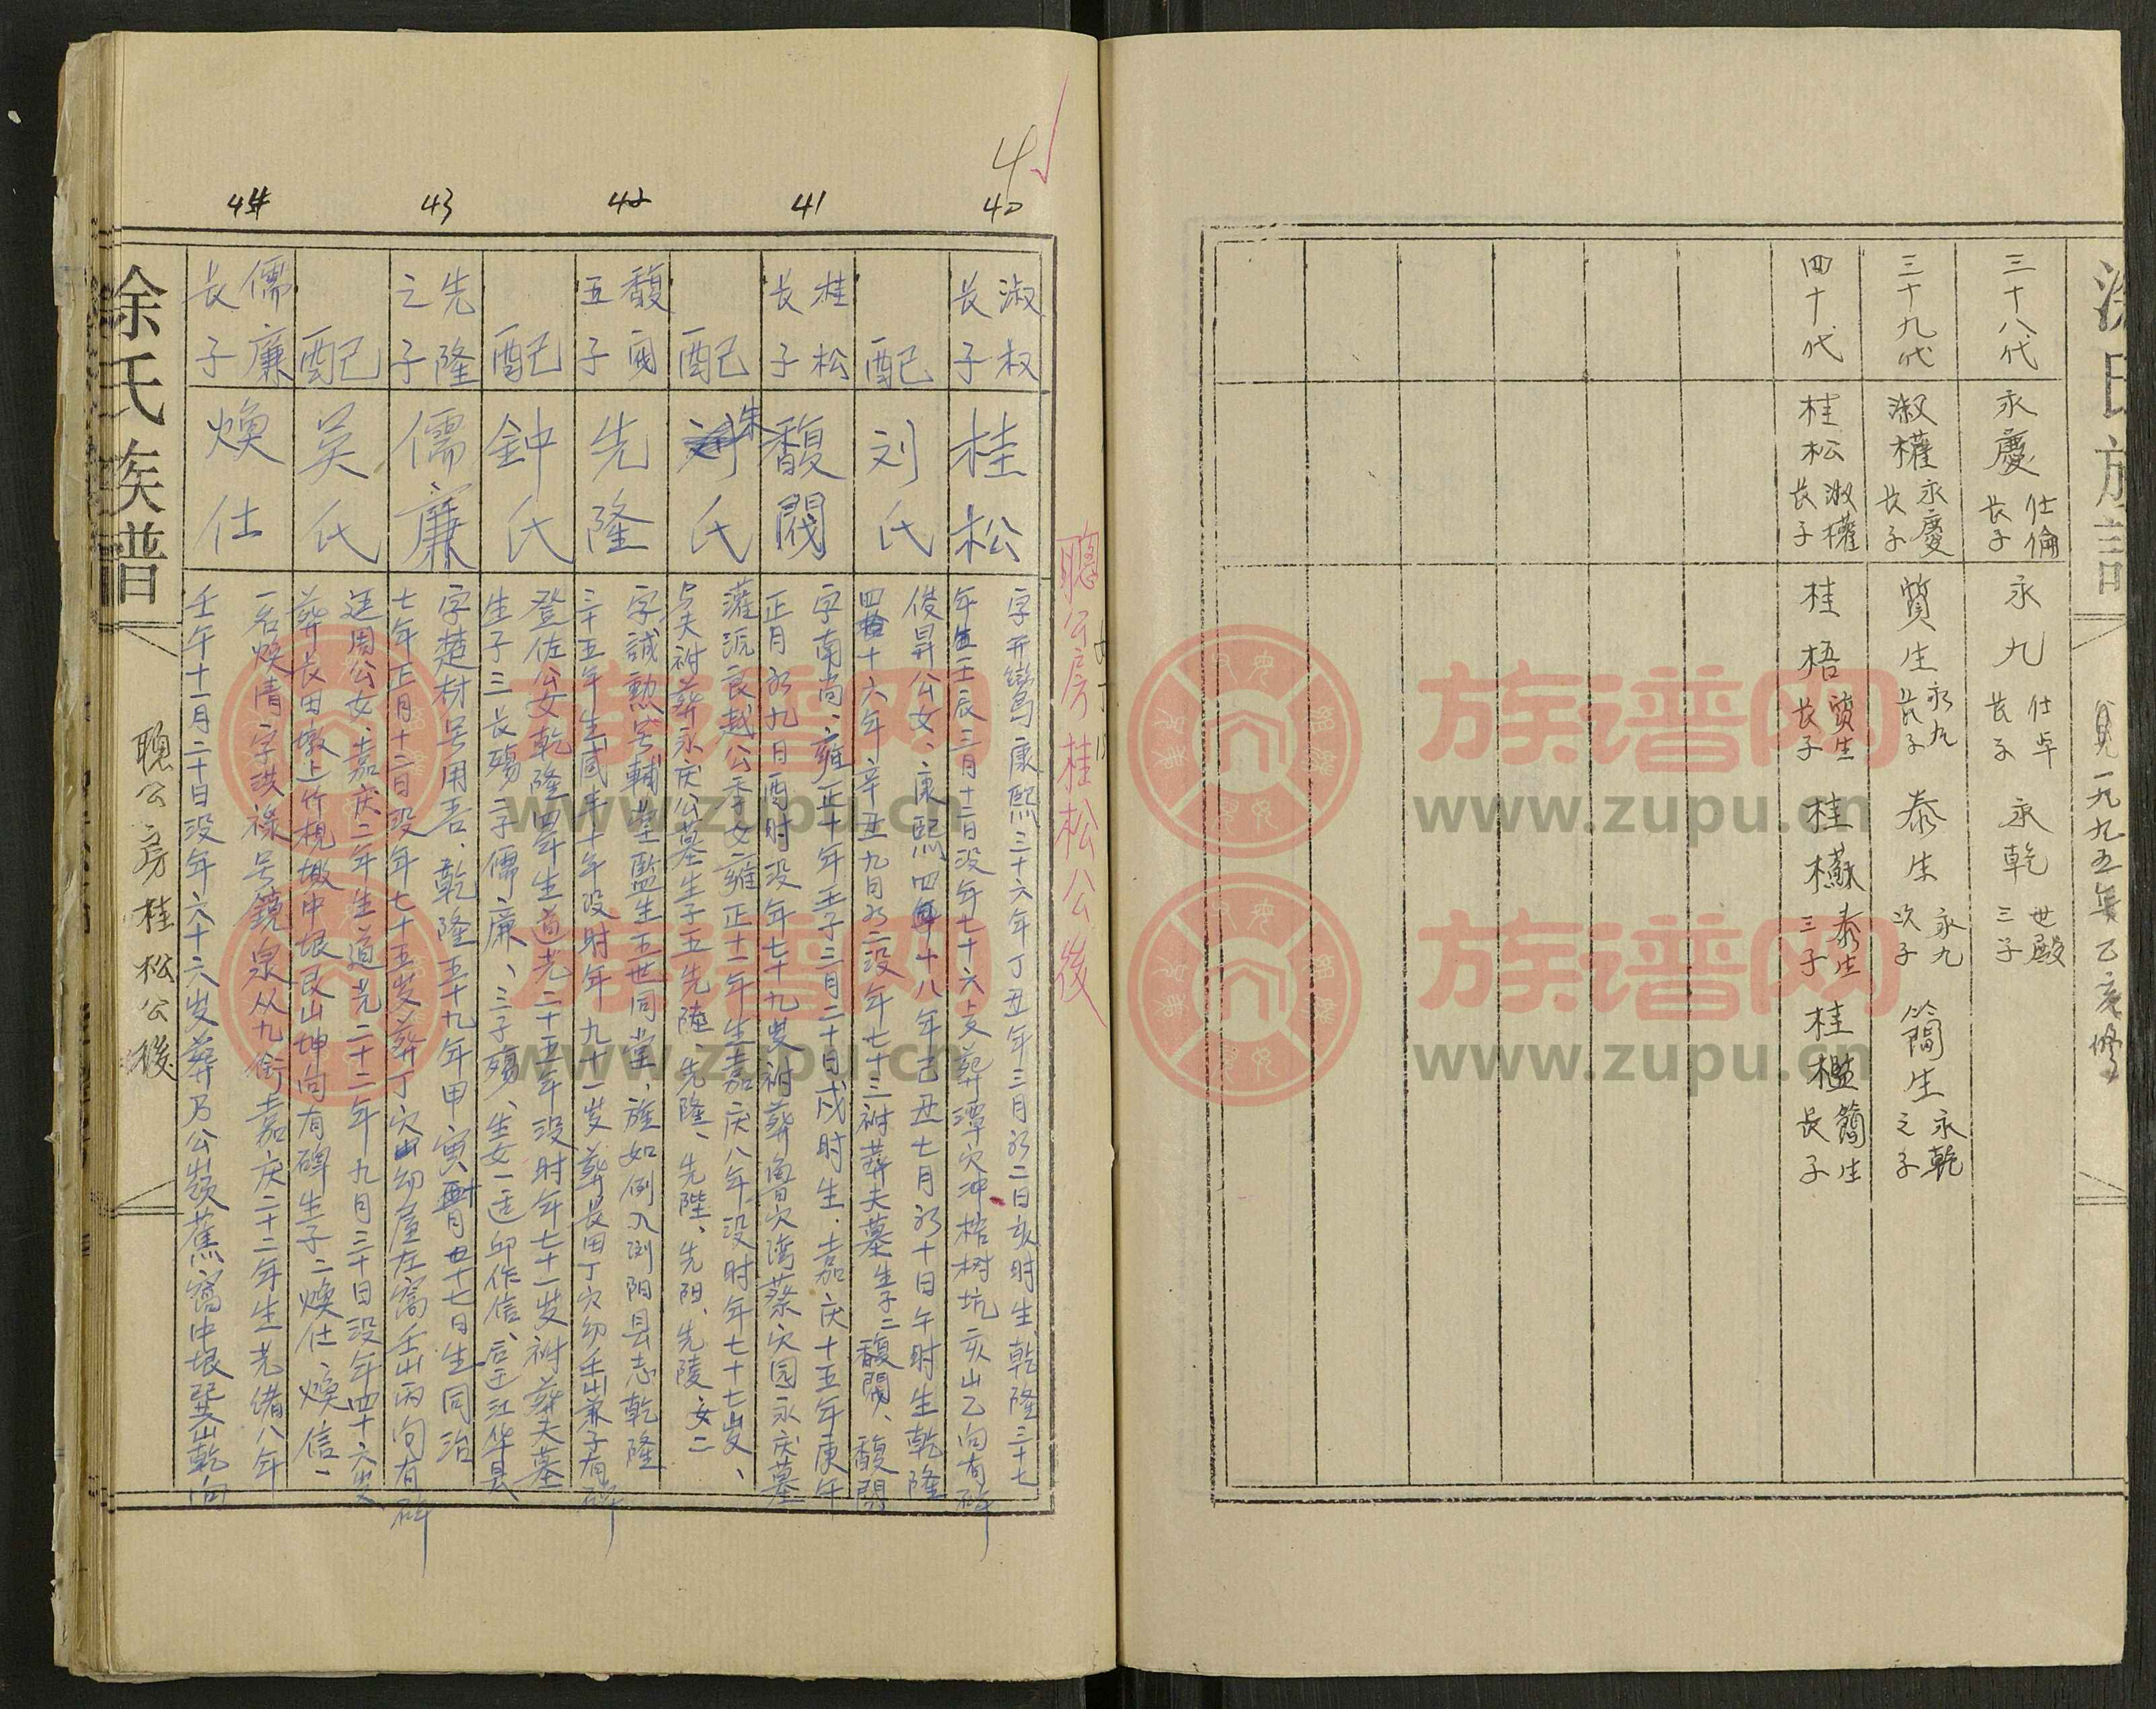 見一九九五年乙亥修
三十八代
永慶
仕倫長子
永九
仕卓長子
永乾
世殿三子
三十九代
淑權
永慶長子
質生
永九長子
泰生
永九次子
簡生
永乾之子
四十代
桂松
淑權長子
桂梧
質生長子
桂蘇
泰生三子
桂檻
簡生長子
聰公房桂松公後
40
41
42
43
44
淑权長子
桂松
字开鸞康熙三十六年丁丑年三月初二日亥时生乾隆三十七
年壬辰三月十二日没年七十六歲葬潭穴冲棓树坑亥山乙向有碑
配
刘氏
俊昇公女、康熙四十八年己丑七月初十日午时生乾隆
四十六年辛丑九月初二没年七十三祔葬夫墓生子二馥閣、馥閎
桂松長子
馥閣
字南尚、雍正十年壬子三月二十日戌时生、嘉庆十五年庚午
正月初九日酉时没年七十九岁祔葬鱼穴湾蔡家园永庆墓
配
朱氏
灌沅良越公季女雍正十一年生嘉庆八年没时年七十七岁、
与夫祔葬永庆公墓生子五先陸、先隆、先陛、先阳、先陵女二
馥閣五子
先隆
字誠勲号輔堂監生五世同堂、旌如例入浏阳县志乾隆
三十五年生咸丰十年没时年九十一岁葬長田丁穴坳壬山兼子有碑
配
鈡氏
登佐公女乾隆四年生道光二十五年没时年七十一岁祔葬夫墓
生子三長殤二子儒廉、三子殤、生女一适邱作信、后迁江华县
先隆之子
儒廉
字楚材号用吾、乾隆五十九年甲寅十七日生同治
七年正月十二日没年七十五岁葬丁穴坳屋左窩壬山丙向有碑
配
吴氏
廷周公女、嘉庆二年生道光二十二年九月三十日没年四十六岁
葬長田墩上竹枧墩中垠艮山坤向有碑生子二煥仕煥信、
儒廉長子
煥仕
一名煥清字洪禄号鏡泉从九銜嘉庆二十二年生光绪八年
壬午十一月二十日没年六十六岁葬乃公嶺蕉窩中垠巽山乾向
余氏族谱
聰公房桂松公後